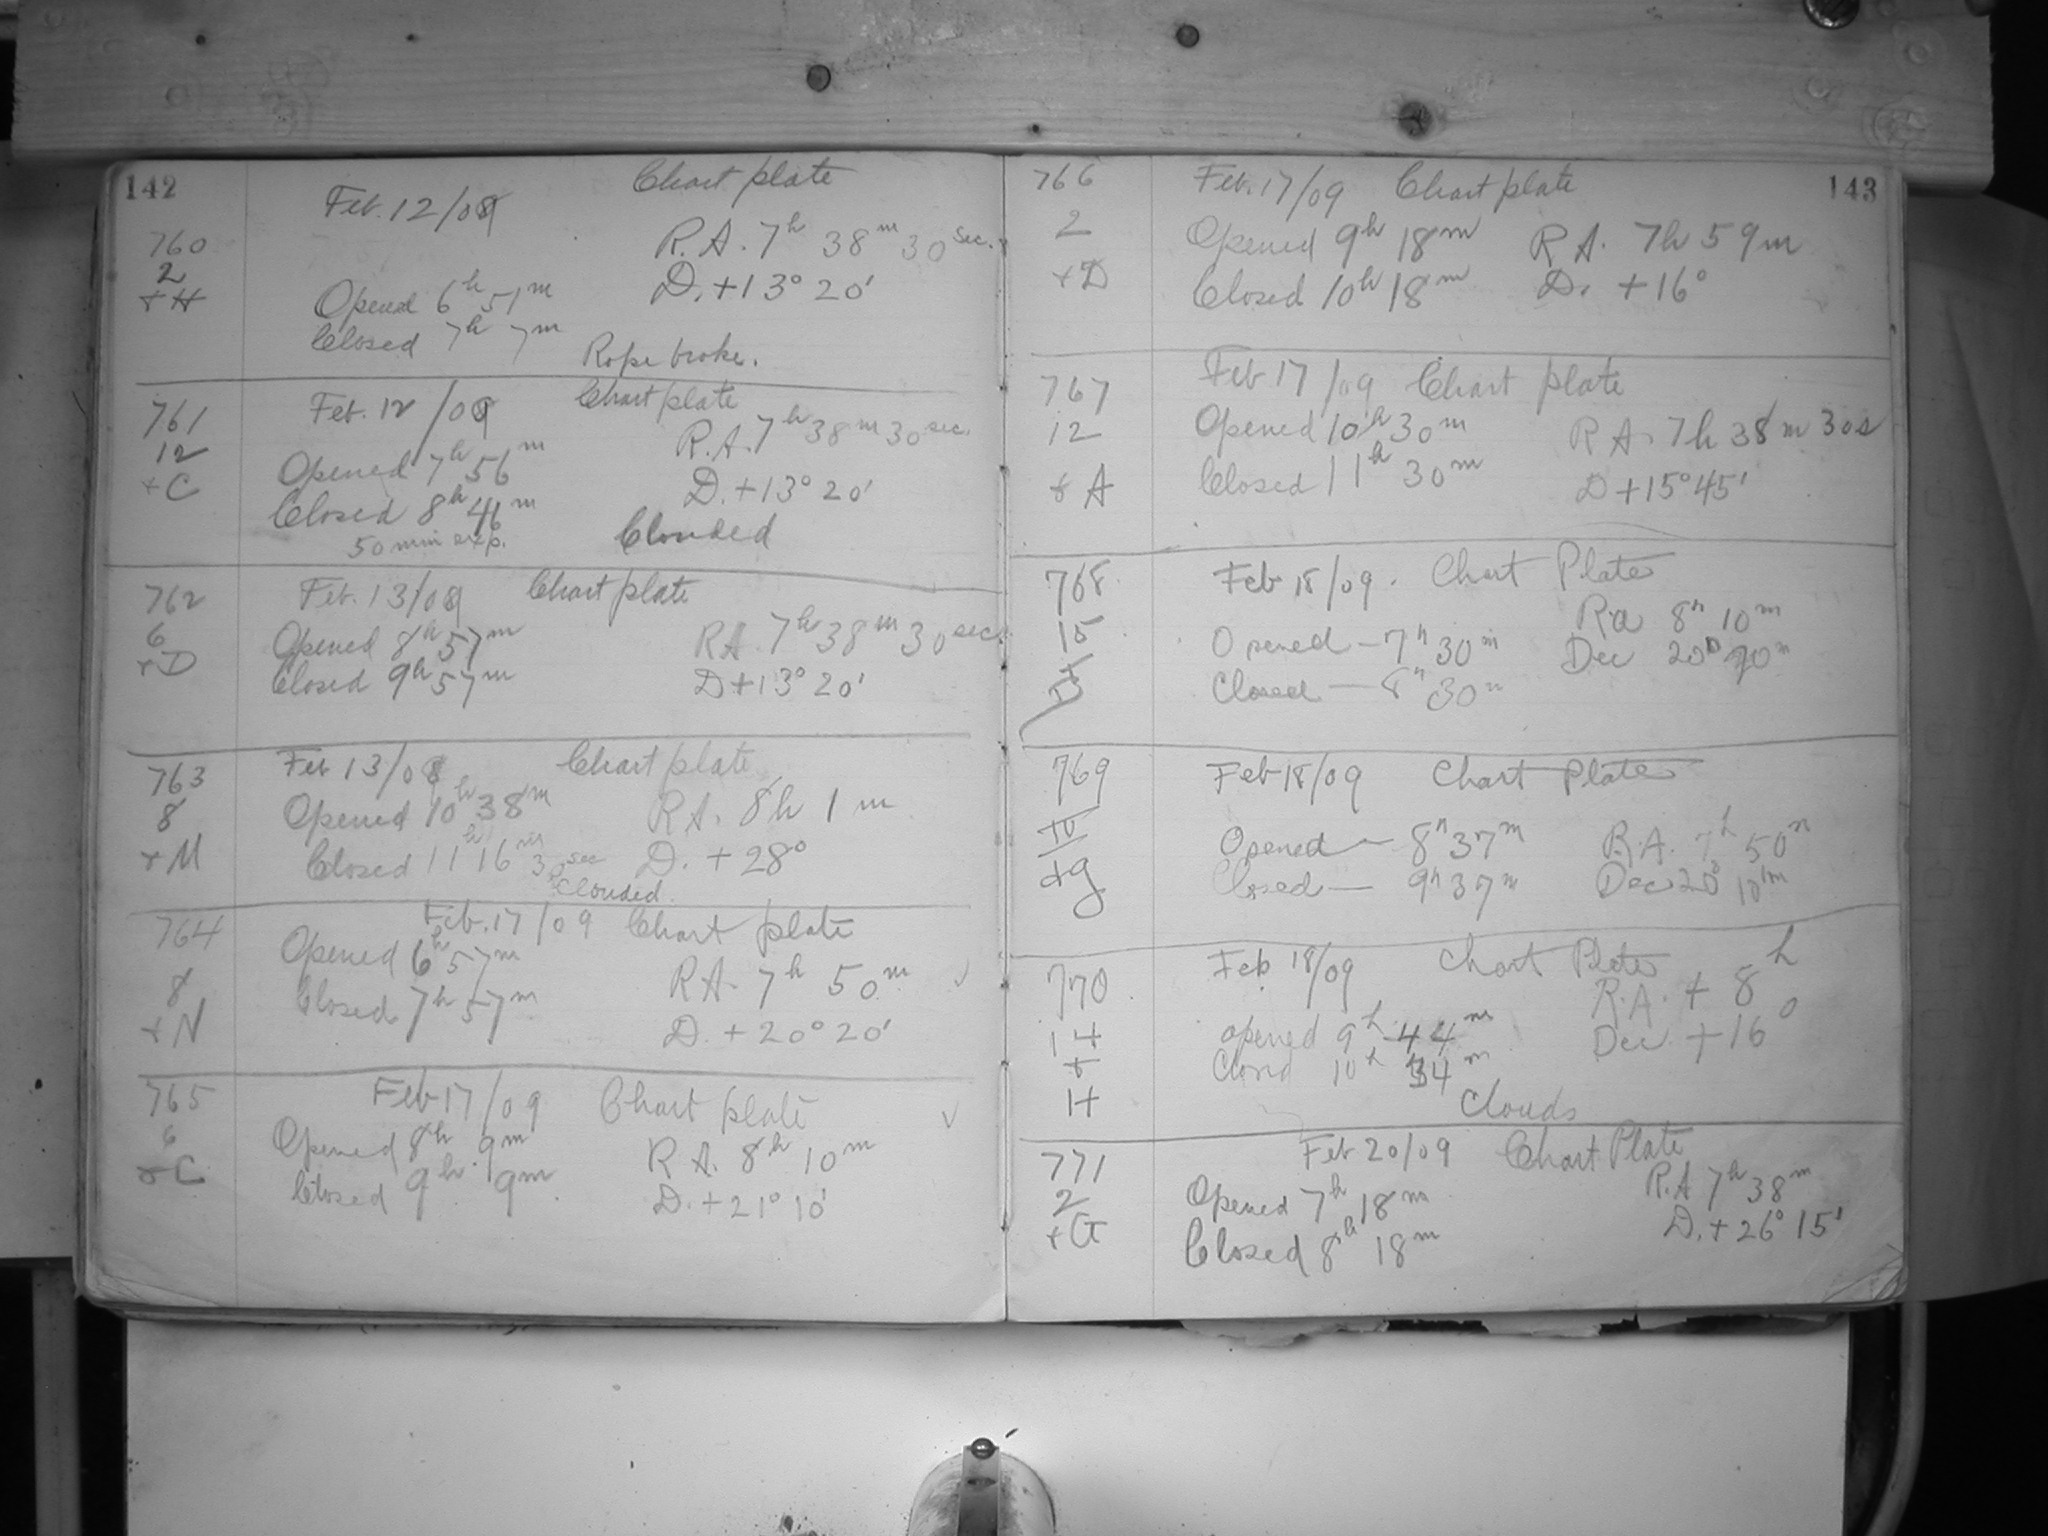 142
Feb. 12/09 Chart plate
760 R.A. 7h 38m 30sec.
2 D. +13° 20'
+H Opened 6h 51m
Closed 7h 7m Rope broke.
761 Feb. 12/09 Chart plate
12 Opened 7h 56m R.A. 7h 38m 30sec.
+C Closed 8h 46m D. +13° 20'
50 min exp. Clouded
762 Feb. 13/09 Chart plate
6 Opened 8h 57m RA. 7h 38m 30sec.
+D Closed 9h 57m D +13° 20'
763 Feb 13/09 Chart plate
8 Opened 10h 38m RA. 8h 1m
+M Closed 11h 16m 30sec D. +28°
Clouded.
764 Feb. 17/09 Chart plate
8 Opened 6h 57m RA. 7h 50m
+N Closed 7h 57m D. +20° 20'
765 Feb 17/09 Chart plate
6 Opened 8h 9m RA. 8h 10m
+C Closed 9h 9m D. +21° 10'
143
766 Feb. 17/09 Chart plate
2 Opened 9h 18m RA. 7h 59m
+D Closed 10h 18m D. +16°
767 Feb 17/09 Chart plate
12 Opened 10h 30m RA. 7h 38m 30s
+A Closed 11h 30m D +15° 45'
768 Feb 18/09. Chart Plate
15 Opened — 7h 30m Ra 8h 10m
Closed — 8h 30m Dec 20°
769 Feb 18/09 Chart Plate
Opened — 8h 37m R.A. 7h 50m
+g Closed — 9h 37m Dec 20° 10m
770 Feb 18/09 Chart Plate
14 opened 9h 44m R.A. + 8h
+ Closed 10h 34m Dec. +16°
H Clouds
771 Feb 20/09 Chart Plate
2 Opened 7h 18m R.A 7h 38m
+G Closed 8h 18m D. +26° 15'